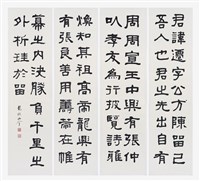 君諱遷字公方陳留己
吾人也君之先出自有
周周宣王中興有張仲
以孝友為行披覽詩雅
煥知其祖高帝龍興
有張良善用籌策在帷
幕之内決勝負千里之
外析珪於留